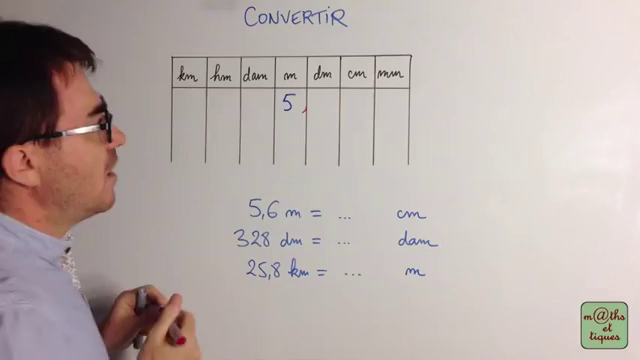 CONVERTIR
km hm dam m dm cm mm
5,
5,6 m = ... cm
328 dm = ... dam
25,8 km = ... m
m@ths
et
tiques